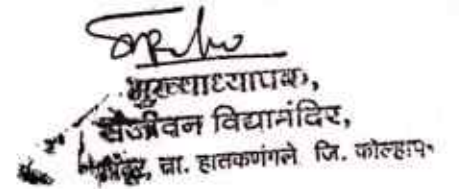 मुख्याध्यापक,
संजीवन विद्यामंदिर,
ता. हातकणंगले जि. कोल्हापू